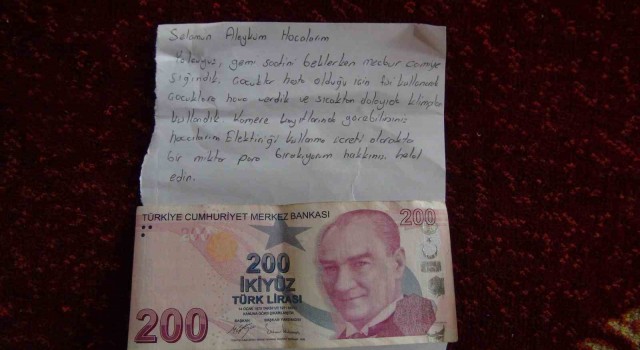 Selamun Aleyküm Hocalarım
Yolcuyuz, gemi saatini beklerken mecbur camiye
sığındık. Çocuklar hasta olduğu için kullanarak
çocuklara hava verdik ve sıcaktan dolayıda klimaları
kullandık. Kamera kayıtlarında görebilirsiniz
hocalarım Elektiriği kullanma ücreti olarakta
bir miktar para bırakıyorum hakkınızı helal
edin.
TÜRKİYE CUMHURİYET MERKEZ BANKASI
200
200
İKİYÜZ
TÜRK LİRASI
200